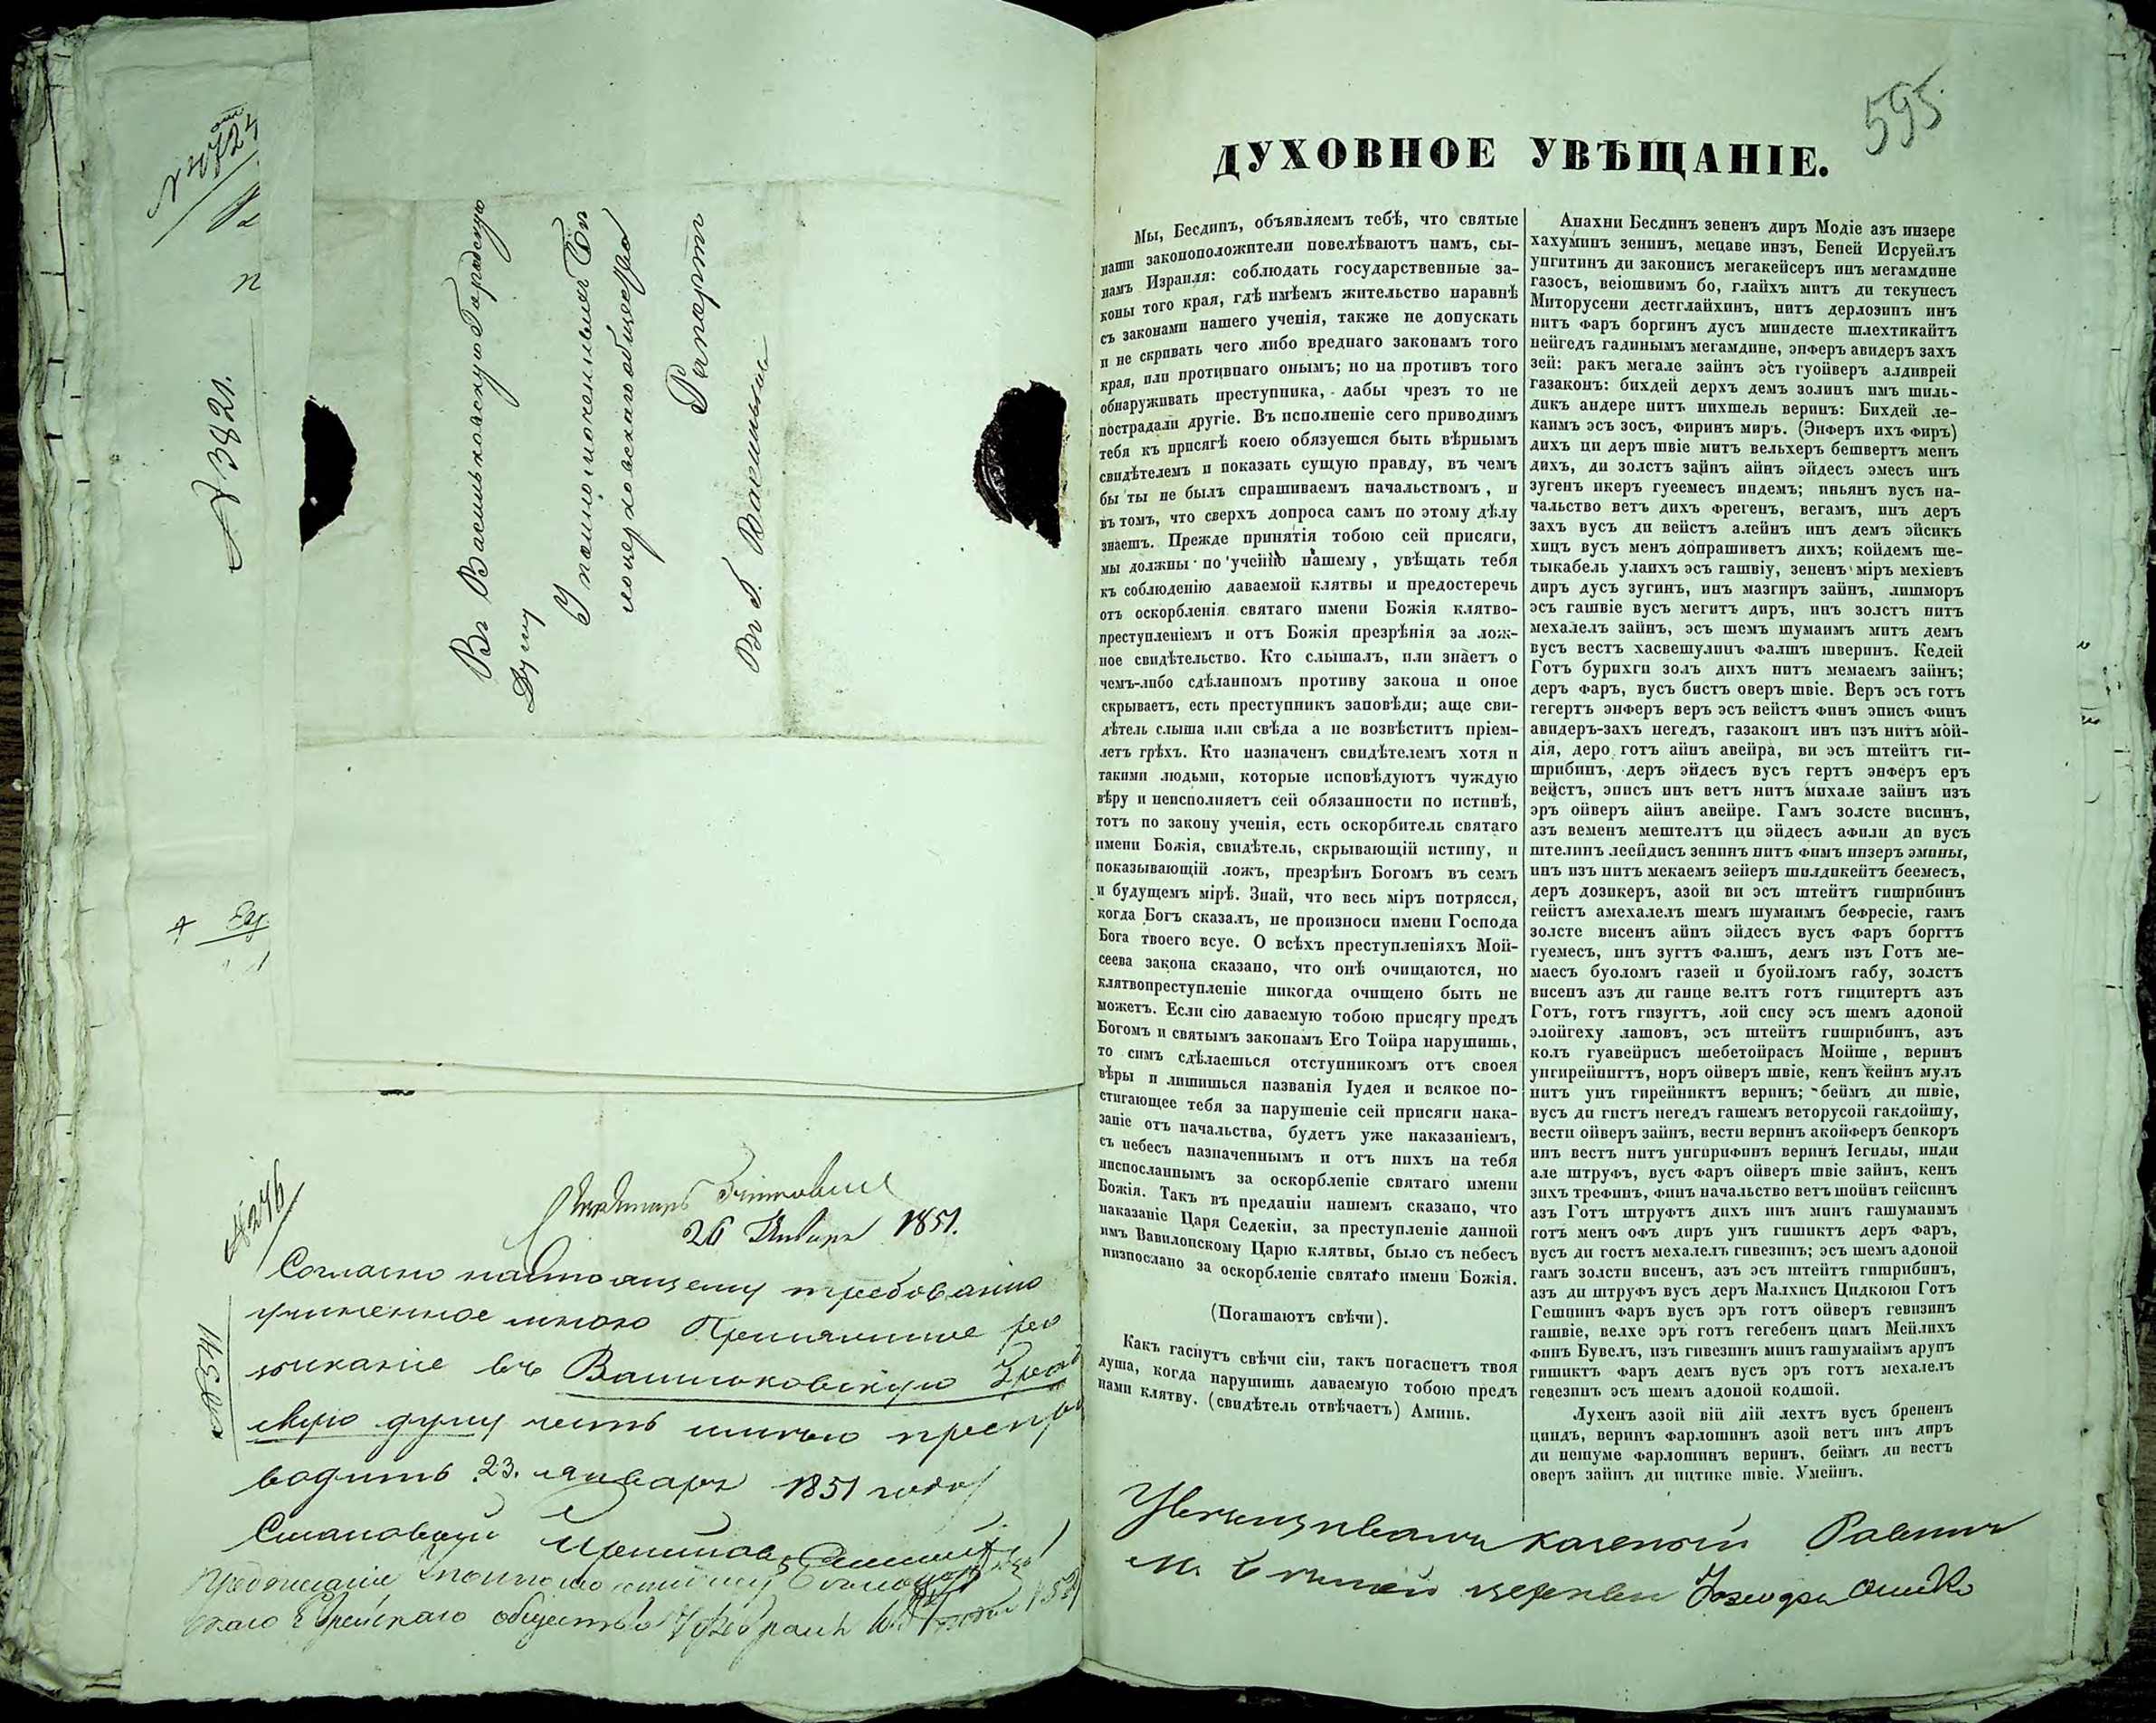 № 3821.
Въ Васильковскую Городскую
Думу
Уполномоченнаго Бѣ
лоцерковскаго общества
Рапортъ
Въ Г. Василькове
26 Января 1851.
№ 246
№ 541
Согласно настоящему требованию
учиненное мною
въ Васильковскую Город
скую думу честь имею препро
водить 23. января 1851 года
Становой Приставъ
Еврейскаго общества
595
ДУХОВНОЕ УВѢЩАНІЕ.
Мы, Бесдинъ, объявляемъ тебѣ, что святые
наши законоположители повелѣваютъ намъ, сы-
намъ Израиля: соблюдать государственные за-
коны того края, гдѣ имѣемъ жительство наравнѣ
съ законами нашего ученія, также не допускать
и не скрывать чего либо вреднаго законамъ того
края, или противнаго онымъ; но на противъ того
обнаруживать преступника, дабы чрезъ то не
пострадали другіе. Въ исполненіе сего приводимъ
тебя къ присягѣ коею обязуешся быть вѣрнымъ
свидѣтелемъ и показать сущую правду, въ чемъ
бы ты не былъ спрашиваемъ начальствомъ, и
въ томъ, что сверхъ допроса самъ по этому дѣлу
знаешъ. Прежде принятія тобою сей присяги,
мы должны по ученію нашему, увѣщать тебя
къ соблюденію даваемой клятвы и предостеречь
отъ оскорбленія святаго имени Божія клятво-
преступленіемъ и отъ Божія презрѣнія за лож-
ное свидѣтельство. Кто слышалъ, или знаетъ о
чемъ-либо сдѣланномъ противу закона и оное
скрываетъ, есть преступникъ заповѣди; аще сви-
дѣтель слыша или свѣда а не возвѣститъ пріем-
летъ грѣхъ. Кто назначенъ свидѣтелемъ хотя и
такими людьми, которые исповѣдуютъ чуждую
вѣру и неисполняетъ сей обязанности по истинѣ,
тотъ по закону ученія, есть оскорбитель святаго
имени Божія, свидѣтель, скрывающій истину, и
показывающій ложъ, презрѣнъ Богомъ въ семъ
и будущемъ мірѣ. Знай, что весь міръ потрясся,
когда Богъ сказалъ, не произноси имени Господа
Бога твоего всуе. О всѣхъ преступленіяхъ Мой-
сеева закона сказано, что онѣ очищаются, но
клятвопреступленіе никогда очищено быть не
можетъ. Если сію даваемую тобою присягу предъ
Богомъ и святымъ законамъ Его Тойра нарушишь,
то симъ сдѣлаешься отступникомъ отъ своея
вѣры и лишишься названія Іудея и всякое по-
стигающее тебя за нарушеніе сей присяги нака-
заніе отъ начальства, будетъ уже наказаніемъ,
съ небесъ назначеннымъ и отъ нихъ на тебя
ниспосланнымъ за оскорбленіе святаго имени
Божія. Такъ въ преданіи нашемъ сказано, что
наказаніе Царя Седекіи, за преступленіе данной
имъ Вавилонскому Царю клятвы, было съ небесъ
низпослано за оскорбленіе святаго имени Божія.
(Погашаютъ свѣчи).
Какъ гаснутъ свѣчи сіи, такъ погаснетъ твоя
душа, когда нарушишь даваемую тобою предъ
нами клятву. (свидѣтель отвѣчаетъ) Аминь.
Анахни Бесдинъ зененъ диръ Модіе азъ инзере
хахуминъ зенинъ, мецаве инзъ, Беней Исруейлъ
унгитинъ ди законисъ мегакейсеръ инъ мегамдине
газосъ, веіошвимъ бо, глайхъ митъ ди текунесъ
Миторусени дестглайхинъ, нитъ дерлозинъ инъ
нитъ фаръ боргинъ дусъ миндесте шлехтикайтъ
нейгедъ гадинымъ мегамдине, энферъ авидеръ захъ
зей: ракъ мегале зайнъ эсъ гуойверъ алдиврей
газаконъ: бихдей дерхъ демъ золинъ имъ шиль-
дикъ андере нитъ нихшель веринъ: Бихдей ле-
каимъ эсъ зосъ, фиринъ миръ. (Энферъ ихъ фиръ)
дихъ ци деръ швіе митъ вельхеръ бешвертъ менъ
дихъ, ди золстъ зайнъ айнъ эйдесъ эмесъ инъ
зугенъ икеръ гуеемесъ индемъ; иньянъ вусъ на-
чальство ветъ дихъ фрегенъ, вегамъ, инъ деръ
захъ вусъ ди вейстъ алейнъ инъ демъ эйсикъ
хицъ вусъ менъ допрашиветъ дихъ; койдемъ ше-
тыкабель улаихъ эсъ гашвіу, зененъ міръ мехіевъ
диръ дусъ зугинъ, инъ мазгиръ зайнъ, лишморъ
эсъ гашвіе вусъ мегитъ диръ, инъ золстъ нитъ
мехалелъ зайнъ, эсъ шемъ шумаимъ митъ демъ
вусъ вестъ хасвешулинъ фалшъ шверинъ. Кедей
Готъ бурихги золъ дихъ нитъ мемаемъ зайнъ;
деръ фаръ, вусъ бистъ оверъ швіе. Веръ эсъ готъ
гегертъ энферъ веръ эсъ вейстъ финъ эписъ финъ
авидеръ-захъ негедъ, газаконъ инъ изъ нитъ мой-
дія, деро готъ айнъ авейра, ви эсъ штейтъ ги-
шрибинъ, деръ эйдесъ вусъ гертъ энферъ еръ
вейстъ, эписъ инъ ветъ нитъ михале зайнъ изъ
эръ ойверъ айнъ авейре. Гамъ золсте висинъ,
азъ веменъ мештелтъ ци эйдесъ афили ди вусъ
штелинъ леейдисъ зенинъ нитъ фимъ инзеръ эмины,
инъ изъ нитъ мекаемъ зейеръ шилдикейтъ беемесъ,
деръ дозикеръ, азой ви эсъ штейтъ гишрибинъ
гейстъ амехалелъ шемъ шумаимъ бефресіе, гамъ
золсте висенъ айнъ эйдесъ вусъ фаръ боргтъ
гуемесъ, инъ зугтъ фалшъ, демъ изъ Готъ ме-
маесъ буоломъ газей и буойломъ габу, золстъ
висенъ азъ ди ганце велтъ готъ гицитертъ азъ
Готъ, готъ гизугтъ, лой сису эсъ шемъ адоной
элойгеху лашовъ, эсъ штейтъ гишрибинъ, азъ
колъ гуавейрисъ шебетойрасъ Мойше, веринъ
унгирейнигтъ, норъ ойверъ швіе, кенъ кейнъ мулъ
нитъ унъ гирейниктъ веринъ; беймъ ди швіе,
вусъ ди гистъ негедъ гашемъ веторусой гакдойшу,
вести ойверъ зайнъ, вести веринъ акойферъ беикоръ
инъ вестъ нитъ унгирифинъ веринъ Іегиды, инди
але штруфъ, вусъ фаръ ойверъ швіе зайнъ, кенъ
зихъ трефинъ, финъ начальство ветъ шойнъ гейсинъ
азъ Готъ штруфтъ дихъ инъ минъ гашумаимъ
готъ менъ офъ диръ унъ гишиктъ деръ фаръ,
вусъ ди гостъ мехалелъ гивезинъ; эсъ шемъ адоной
гамъ золсти висенъ, азъ эсъ штейтъ гишрибинъ,
азъ ди штруфъ вусъ деръ Малхисъ Цидкоюи Готъ
Гешпинъ фаръ вусъ эръ готъ ойверъ гевизинъ
гашвіе, велхе эръ готъ гегебенъ цимъ Мейлихъ
финъ Бувелъ, изъ гивезинъ минъ гашумаимъ арупъ
гишиктъ фаръ демъ вусъ эръ готъ мехалелъ
гевезинъ эсъ шемъ адоной кодшой.
Лухенъ азой вій дій лехтъ вусъ брененъ
циндъ, веринъ фарлошинъ азой ветъ инъ диръ
ди нешуме фарлошинъ веринъ, беймъ ди вестъ
оверъ зайнъ ди ицтике швіе. Умейнъ.
казеный Равинъ
м. Белой церкви